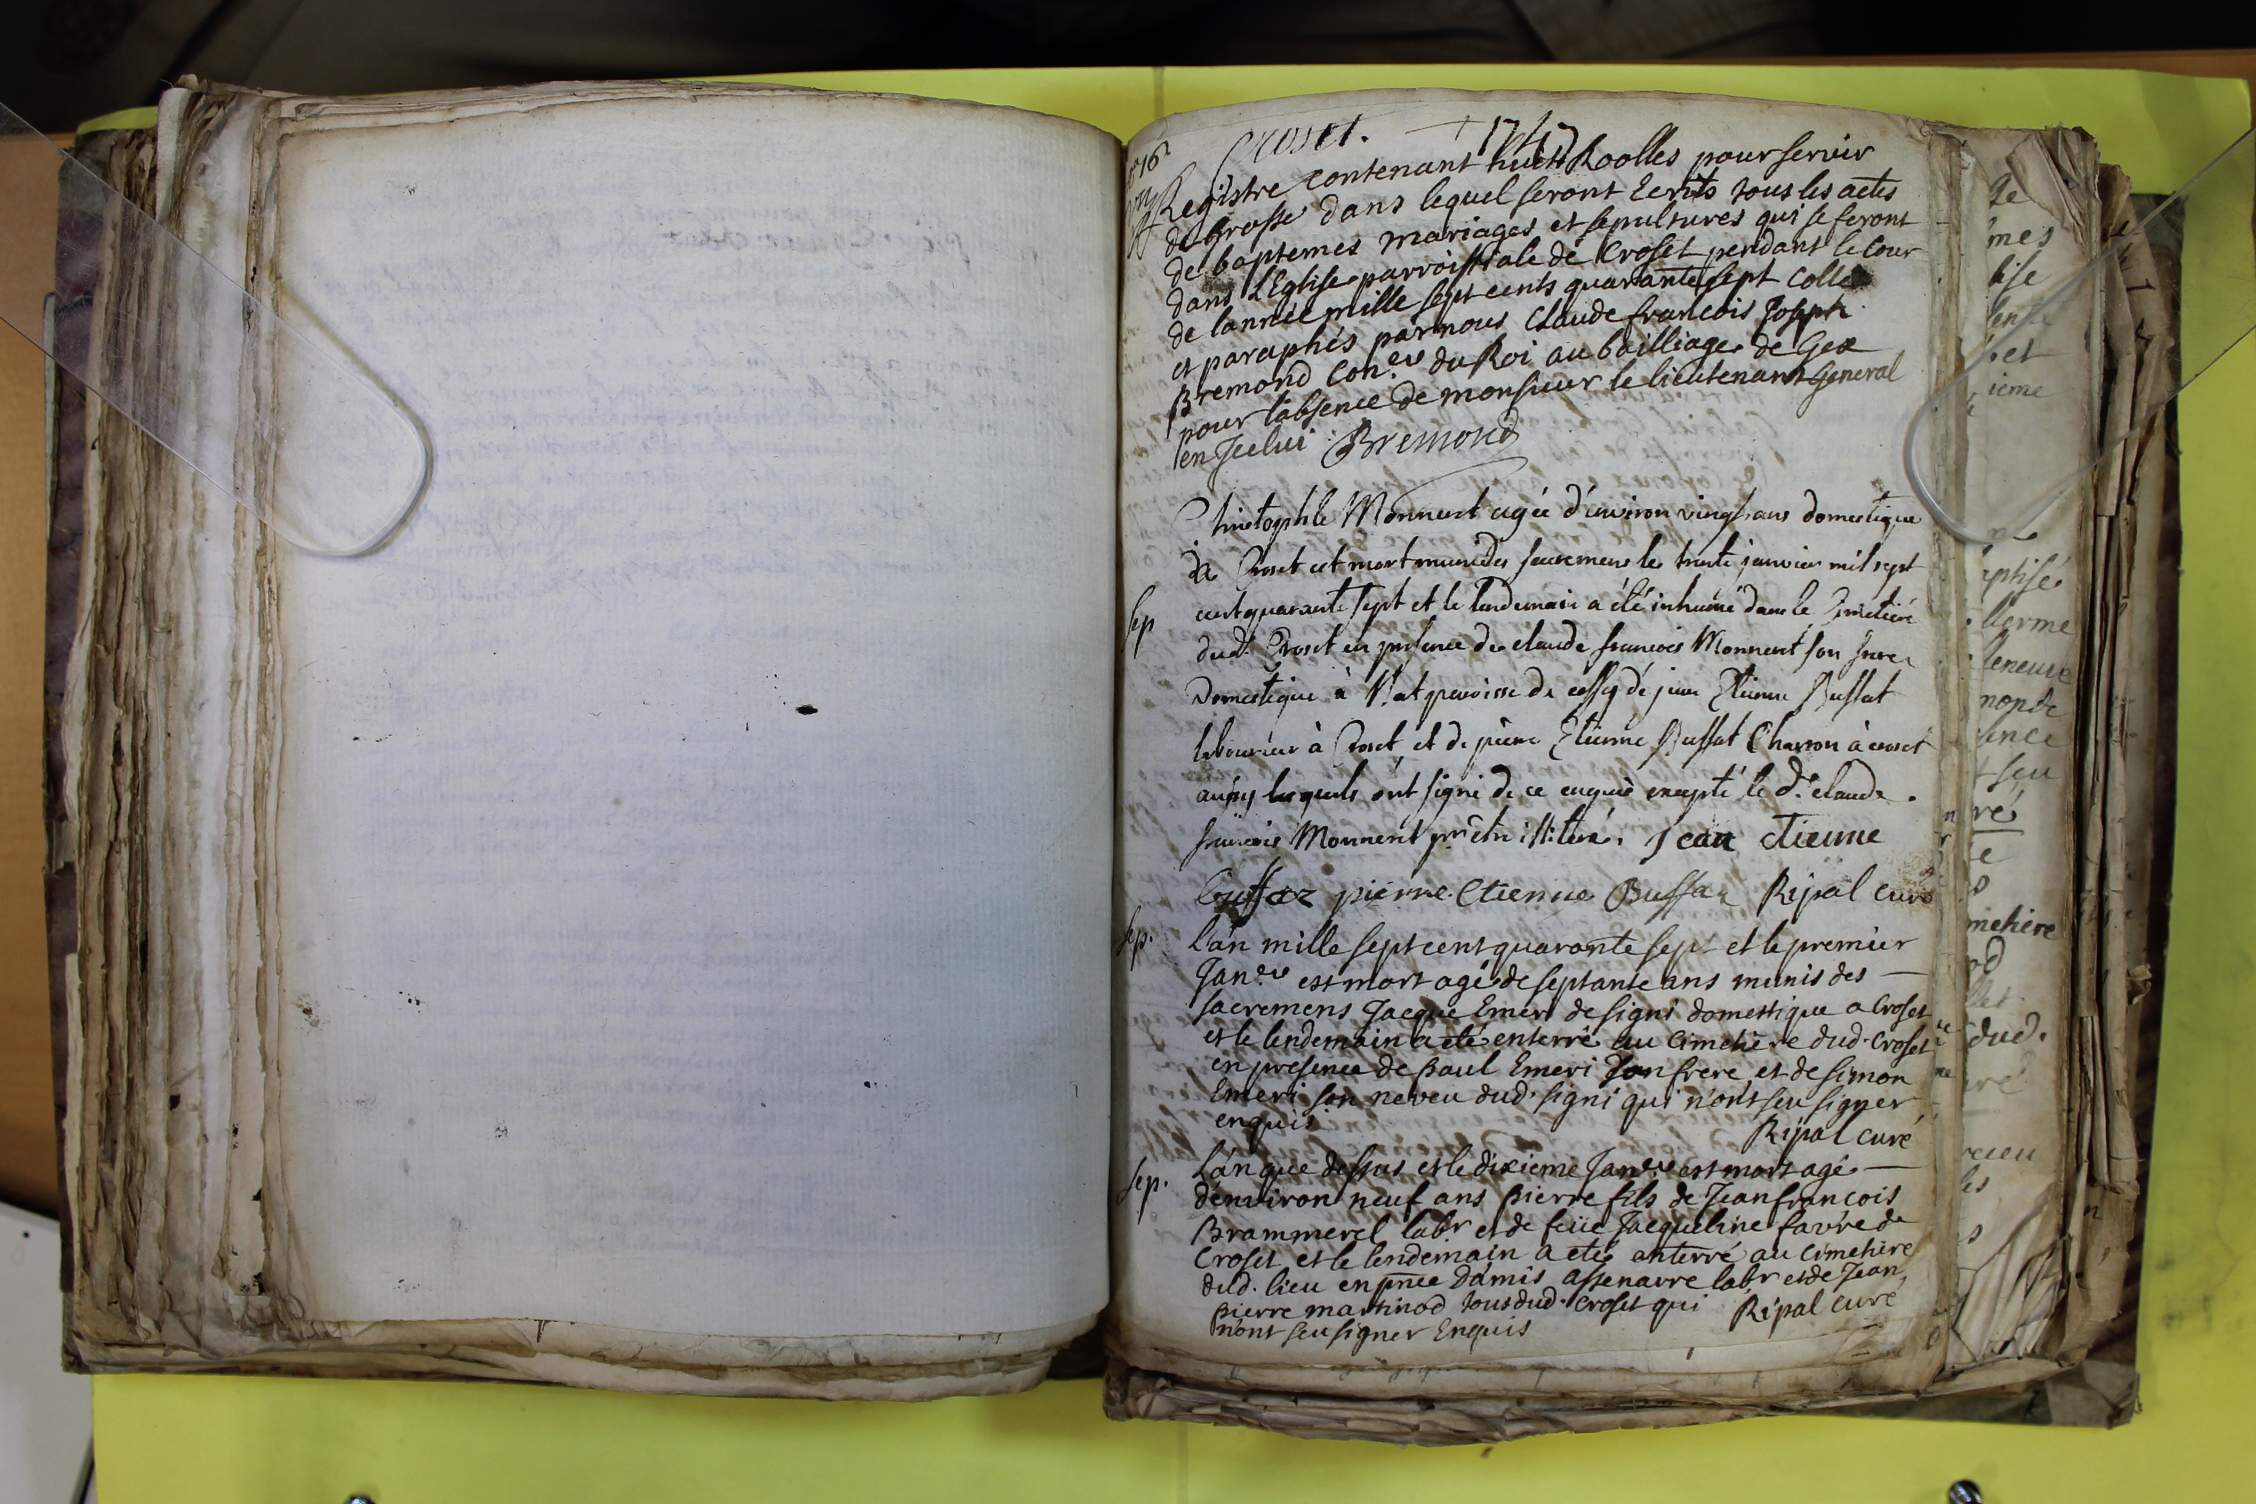 Croset. 1747
Registre contenant huit Roolles pour servir
de Grosse dans lequel seront Ecrits tous les actes
de baptemes mariages et sepultures qui se feront
dans l'Eglise parroissiale de Croset pendant le Cour
de lannée mille sept cents quarante sept Collé
et paraphés par nous Claude francois Joseph
Bremond Con.er du Roi au bailliage de Gex
pour l'absence de monsieur le lieutenant General
en Jcelui Bremond
Christophle Monnent agée d'environ vingt ans domestique
de Croset est mort muni des sacremens le trente janvier mil sept
cent quarante sept et le lendemain a été inhumé dans le Cimetiére
Sep
dud. Croset en présence de claude francois Monnent son frere
Domestique à parroisse de cessy de jean Etienne Buffat
laboureur à Croset, et de pierre Etienne Buffat Charron à croset
aussy lesquels ont signé de ce enquis excepté le d. claude
francois Monnent illiteré. Jean etienne
buffaz pierre Etienne Buffaz Ripal curé
Sep.
L'an mille sept cent quarante sept et le premier
Jan.er est mort agé de septante ans munis des
sacremens Jacque Emeri de signi domestique a Croset
et le lendemain a eté enterré au Cimetière dud. Croset
en presence de paul Emeri son frere et de simon
Emeri son neveu dud. signi qui n'ont seu signer
enquis Ripal curé
Sep.
L'an que dessus et le dixieme Jan.er est mort agé
d'environ neuf ans pierre fils de Jean francois
Brammerel labr et de feüe Jacqueline favre de
Croset et le lendemain a eté anterré au cimetiere
dud. lieu en pnce d'amis assenavre labr et de Jean
pierre martinod tous dud. Croset qui Ripal curé
n'ont seu signer Enquis